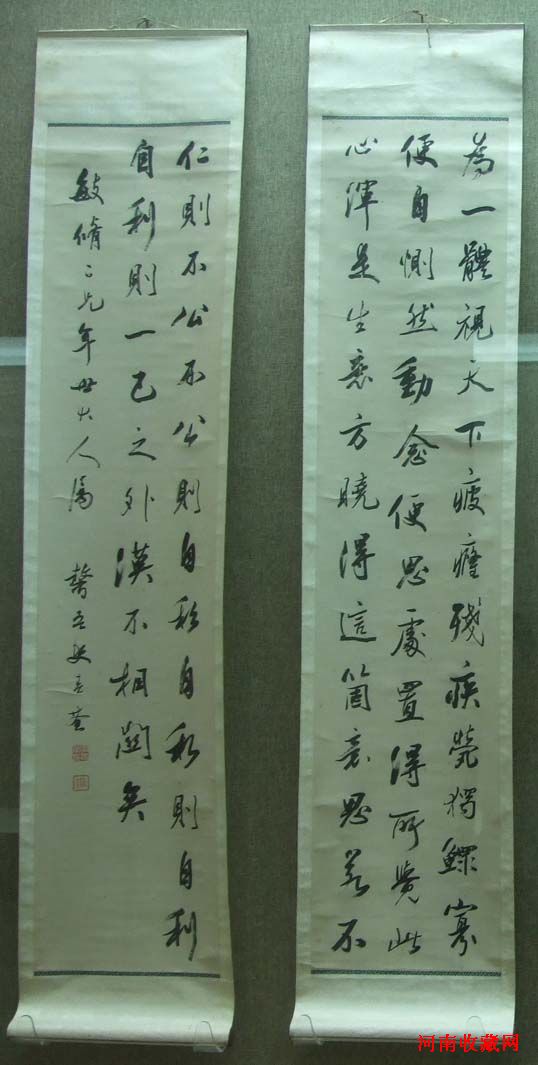 為一體視天下疲癃殘疾煢獨鰥寡
便自惻然動念便思處置得所覺此
心渾是生意方曉得這箇意思若不
仁則不公不公則自私自私則自利
自利則一己之外漠不相關矣
敏脩二兄年世大人屬
河南收藏网